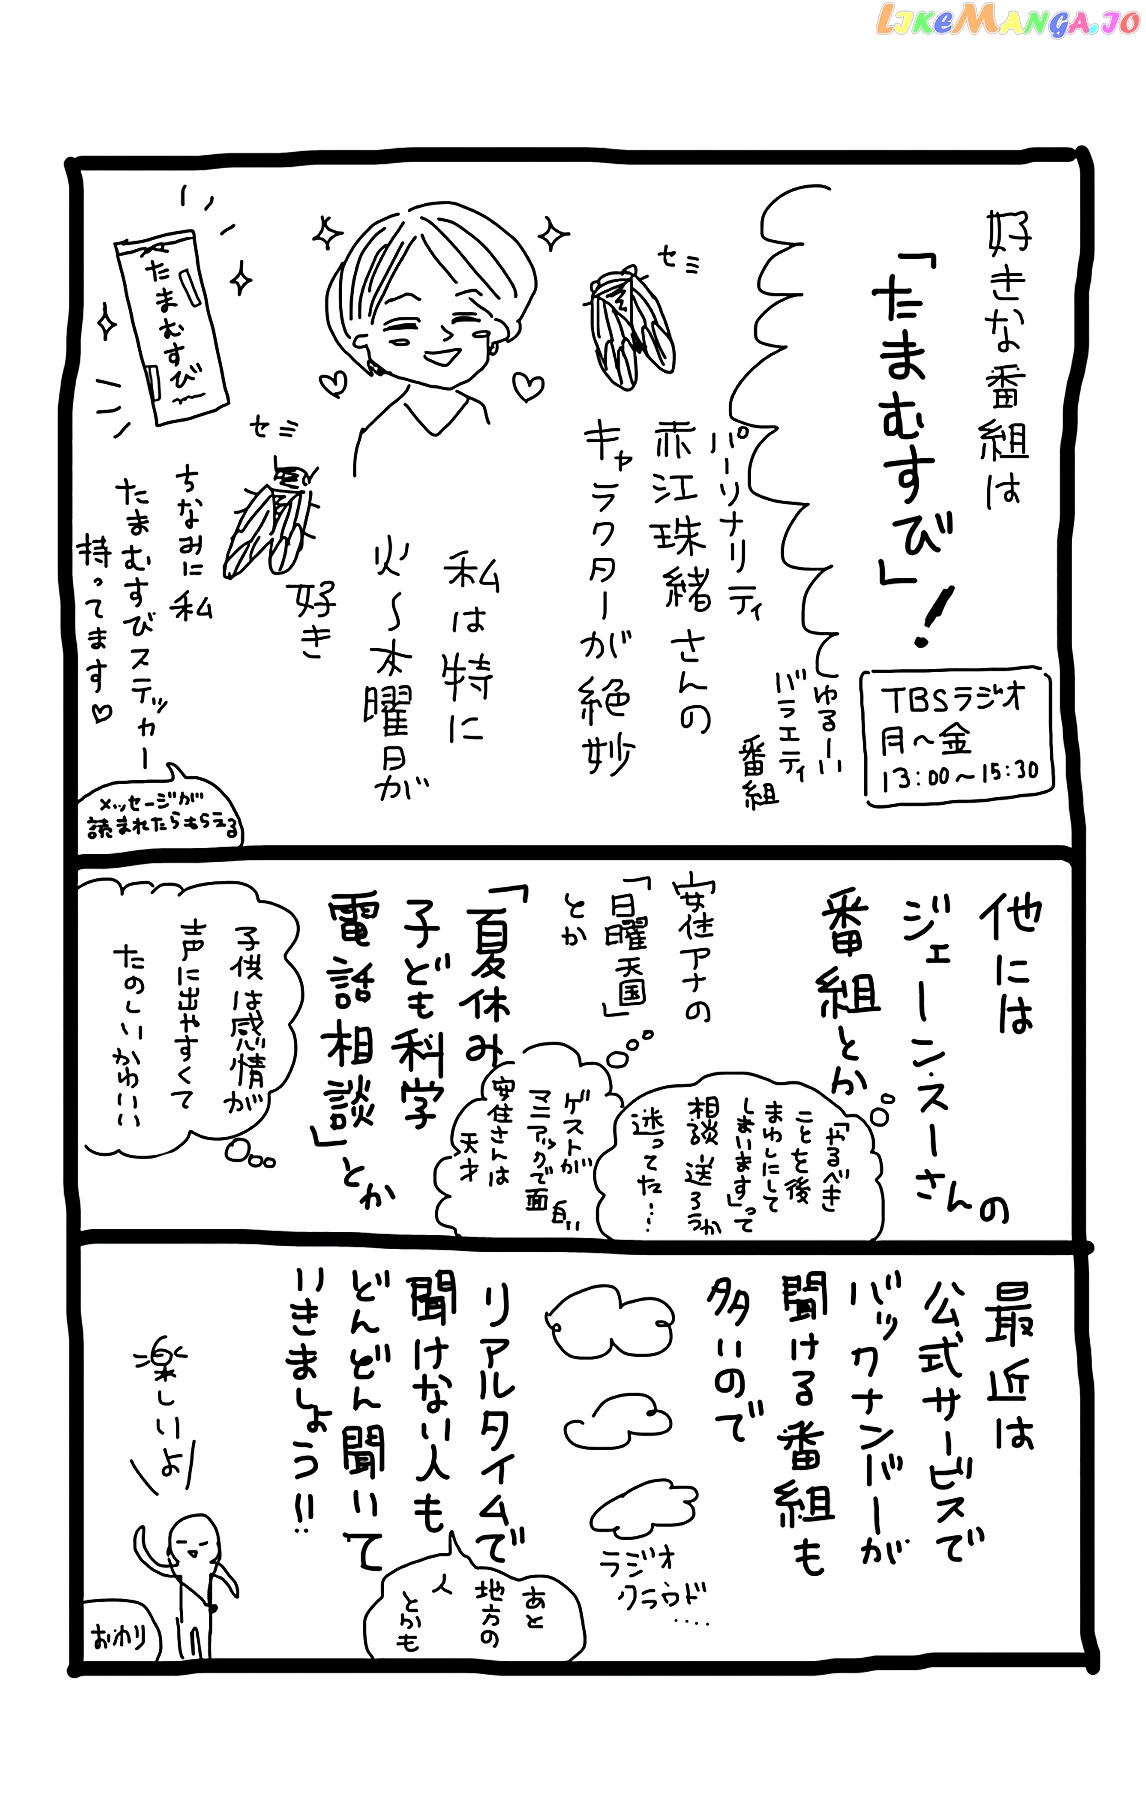 LIKEMANGA.IO
好きな番組は
「たまむすび」！
TBSラジオ
月〜金
13:00〜15:30
ゆるーい
バラエティ
番組
パーソナリティ
赤江珠緒さんの
キャラクターが絶妙
セミ
私は特に
火〜木曜日が
好き
セミ
たまむすび
ちなみに私
たまむすびステッカー
持ってます♡
メッセージが
読まれたらもらえる
他には
ジェーン・スーさんの
番組とか
「やるべき
ことを後
まわしにして
しまいます」って
相談送ろうか
迷ってた……
安住アナの
「日曜天国」
とか
ゲストが
マニアックで面白い
安住さんは
天才
「夏休み
子ども科学
電話相談」とか
子供は感情が
声に出やすくて
たのしいかわいい
最近は
公式サービスで
バックナンバーが
聞ける番組も
多いので
ラジオ
クラウド
‥‥
リアルタイムで
聞けない人も
どんどん聞いて
いきましょう!!
あと
地方の
人
とかも
楽しいよ
おわり